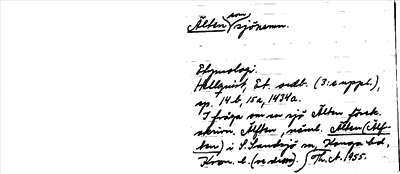 Älten som sjönamn.
Etymologi.
Hellquist, Et. ordb. (3:e uppl.),
sp. 14b, 15a, 1434a.
I fråga om en sjö Älten förek.
skrivn. Älften, näml. Älten (Älf-
ten) i S. Sandsjö sn, Konga hd,
Kron. l. (se denna). Th. A. 1955.